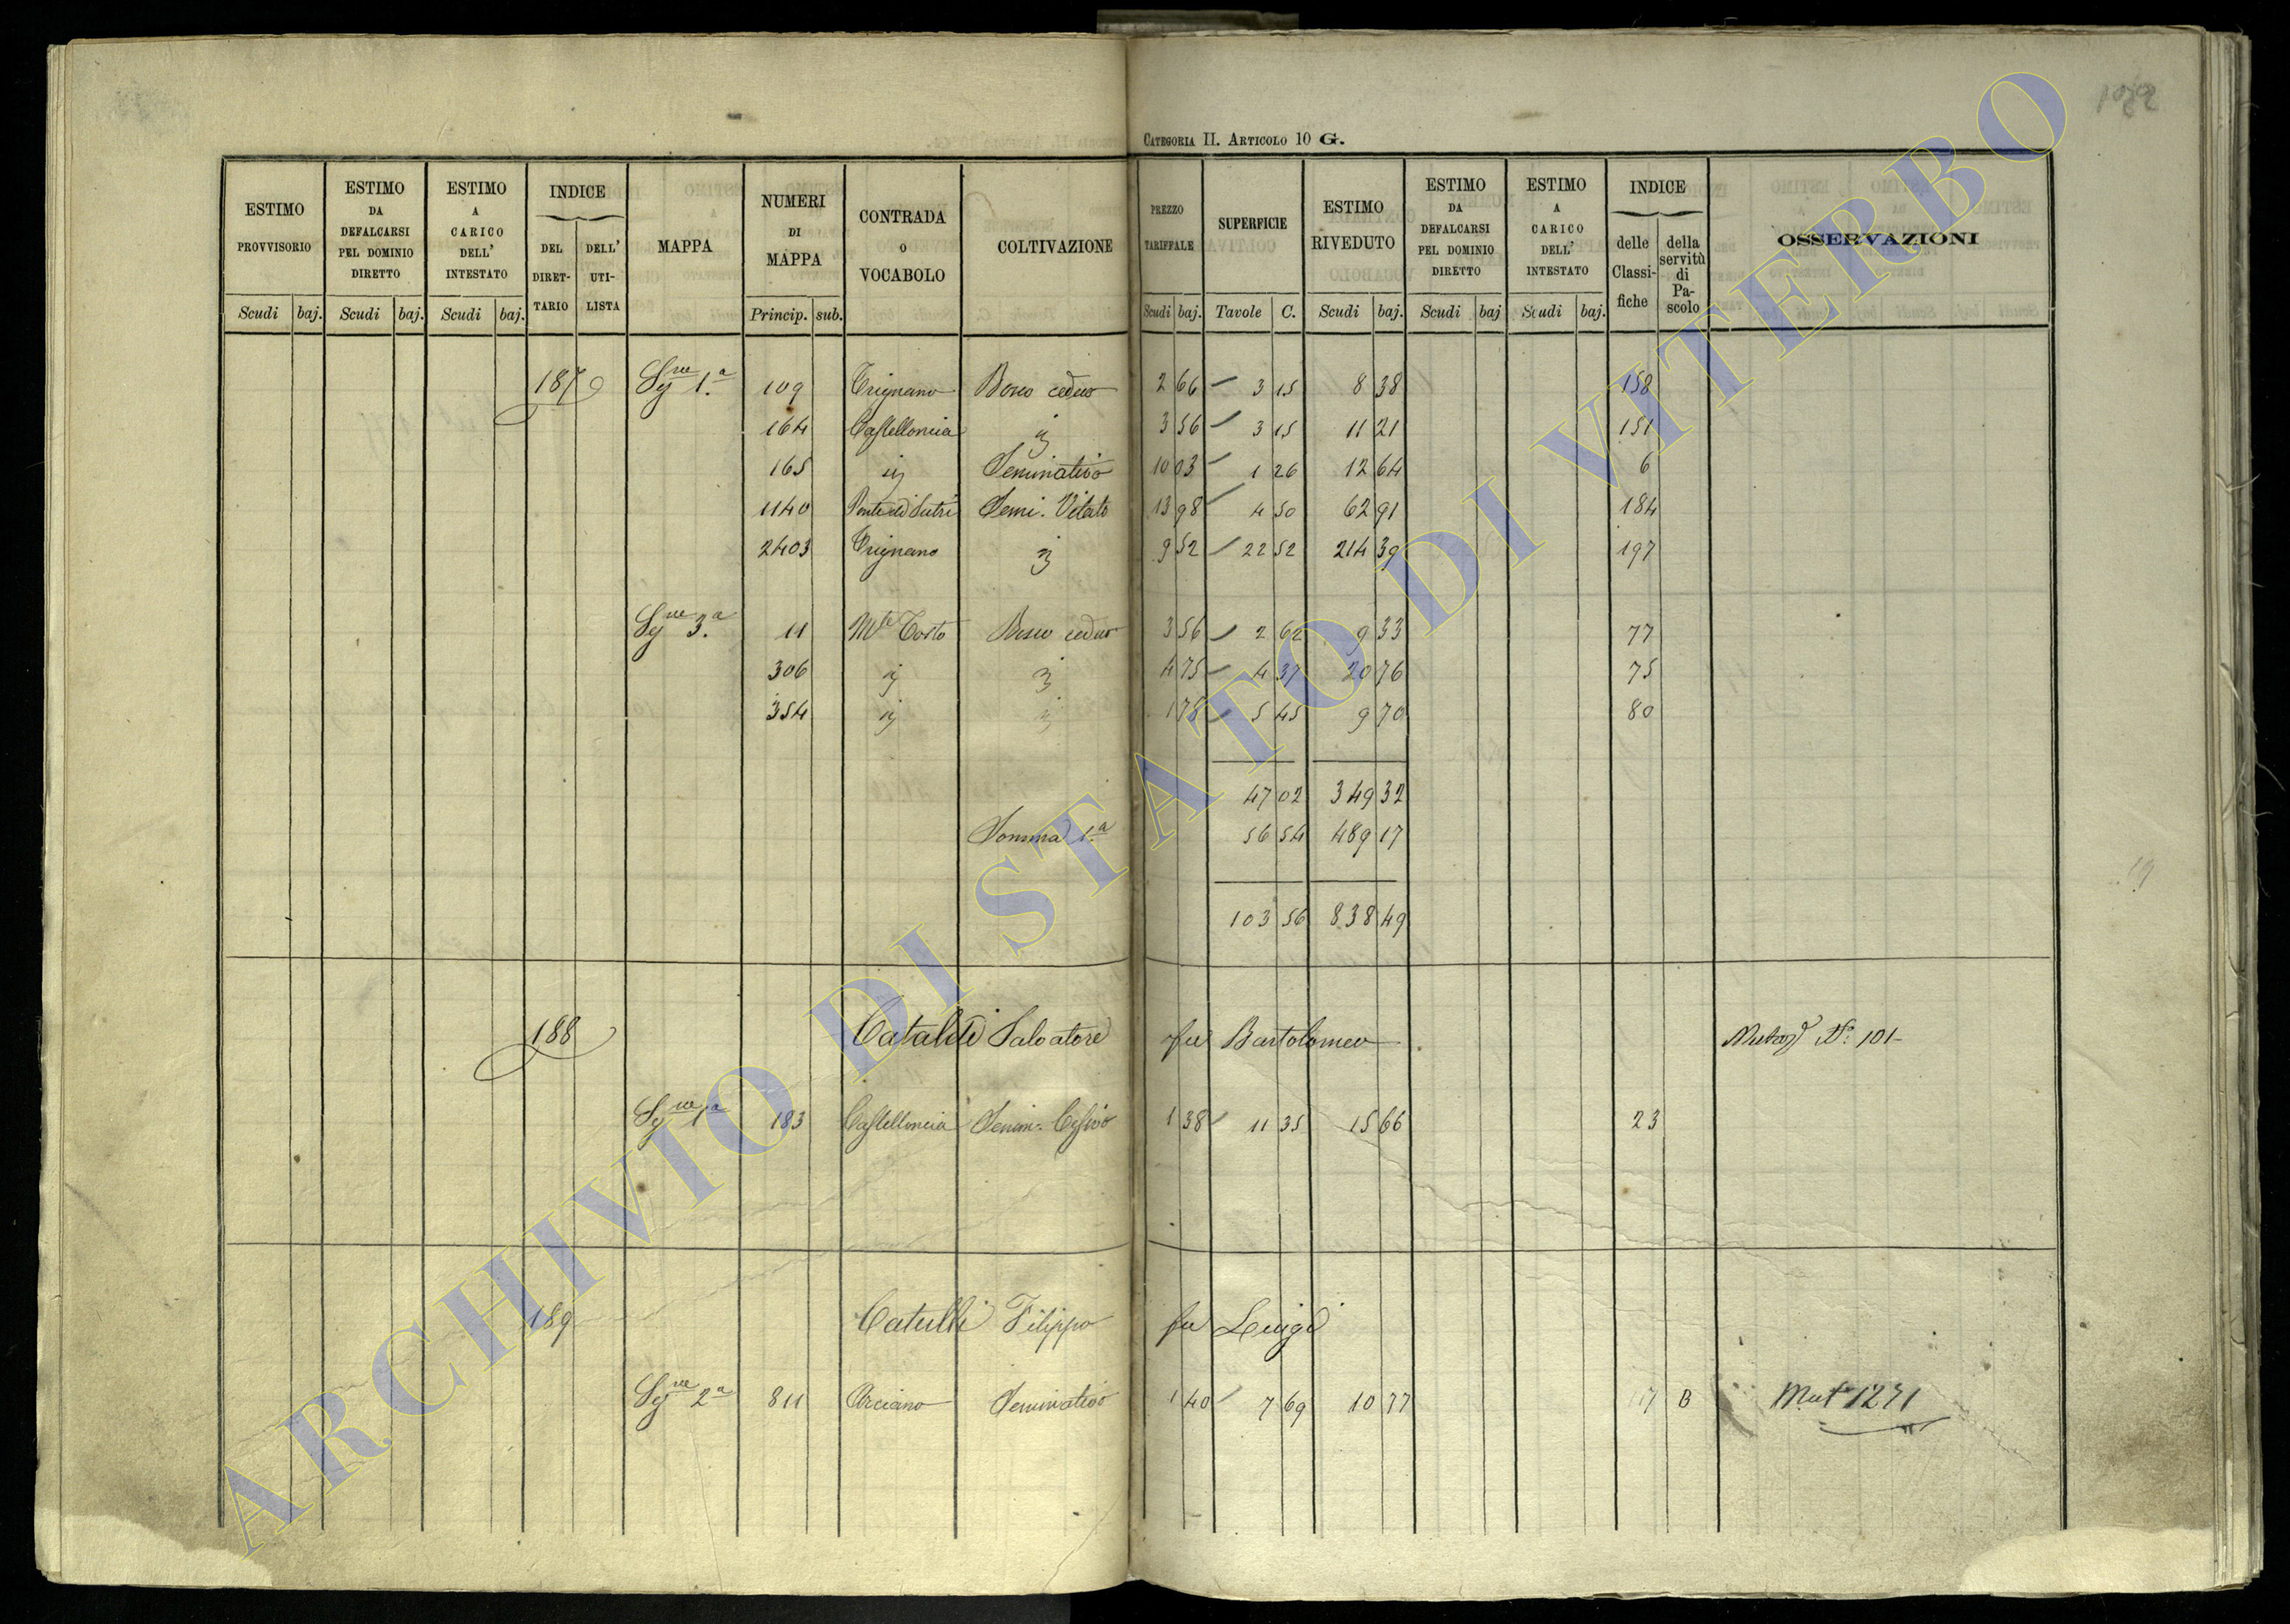 CATEGORIA II. ARTICOLO 10 G.
ESTIMO PROVVISORIO Scudi baj.
ESTIMO DA DEFALCARSI PEL DOMINIO DIRETTO Scudi baj.
ESTIMO A CARICO DELL' INTESTATO Scudi baj.
INDICE DEL DIRET-TARIO DELL' UTI-LISTA
MAPPA
NUMERI DI MAPPA Princip. sub.
CONTRADA O VOCABOLO
COLTIVAZIONE
PREZZO TARIFFALE Scudi baj.
SUPERFICIE Tavole C.
ESTIMO RIVEDUTO Scudi baj.
ESTIMO DA DEFALCARSI PEL DOMINIO DIRETTO Scudi baj
ESTIMO A CARICO DELL' INTESTATO Scudi baj.
INDICE delle Classi-fiche della servitù di Pa-scolo
OSSERVAZIONI
187 Sgne 1.a 109 Trignano Bosco ceduo 2 66 3 15 8 38 158
164 Castelloncia ij 3 56 3 15 11 21 151
165 ij Seminativo 10 03 1 26 12 64 6
1140 Ponte di Sutri Semi. Vitato 13 98 4 50 62 91 184
2403 Trignano ij 9 52 22 52 214 39 197
Sgne 3.a 11 Mte Torto Bosco ceduo 3 56 2 62 9 33 77
306 ij ij 4 75 4 37 20 76 75
354 ij ij 1 78 5 45 9 70 80
47 02 349 32
Somma 1.a 56 54 489 17
103 56 838 49
188 Cataldi Salvatore fu Bartolomeo N.o 101
Sgne 1a 183 Castelloncia Semin. Cespivo 1 38 11 35 15 66 23
189 Catulli Filippo fu Luigi
Sgne 2a 811 Arciano Seminativo 1 40 7 69 10 77 17 B Mut 1271
ARCHIVIO DI STATO DI VITERBO